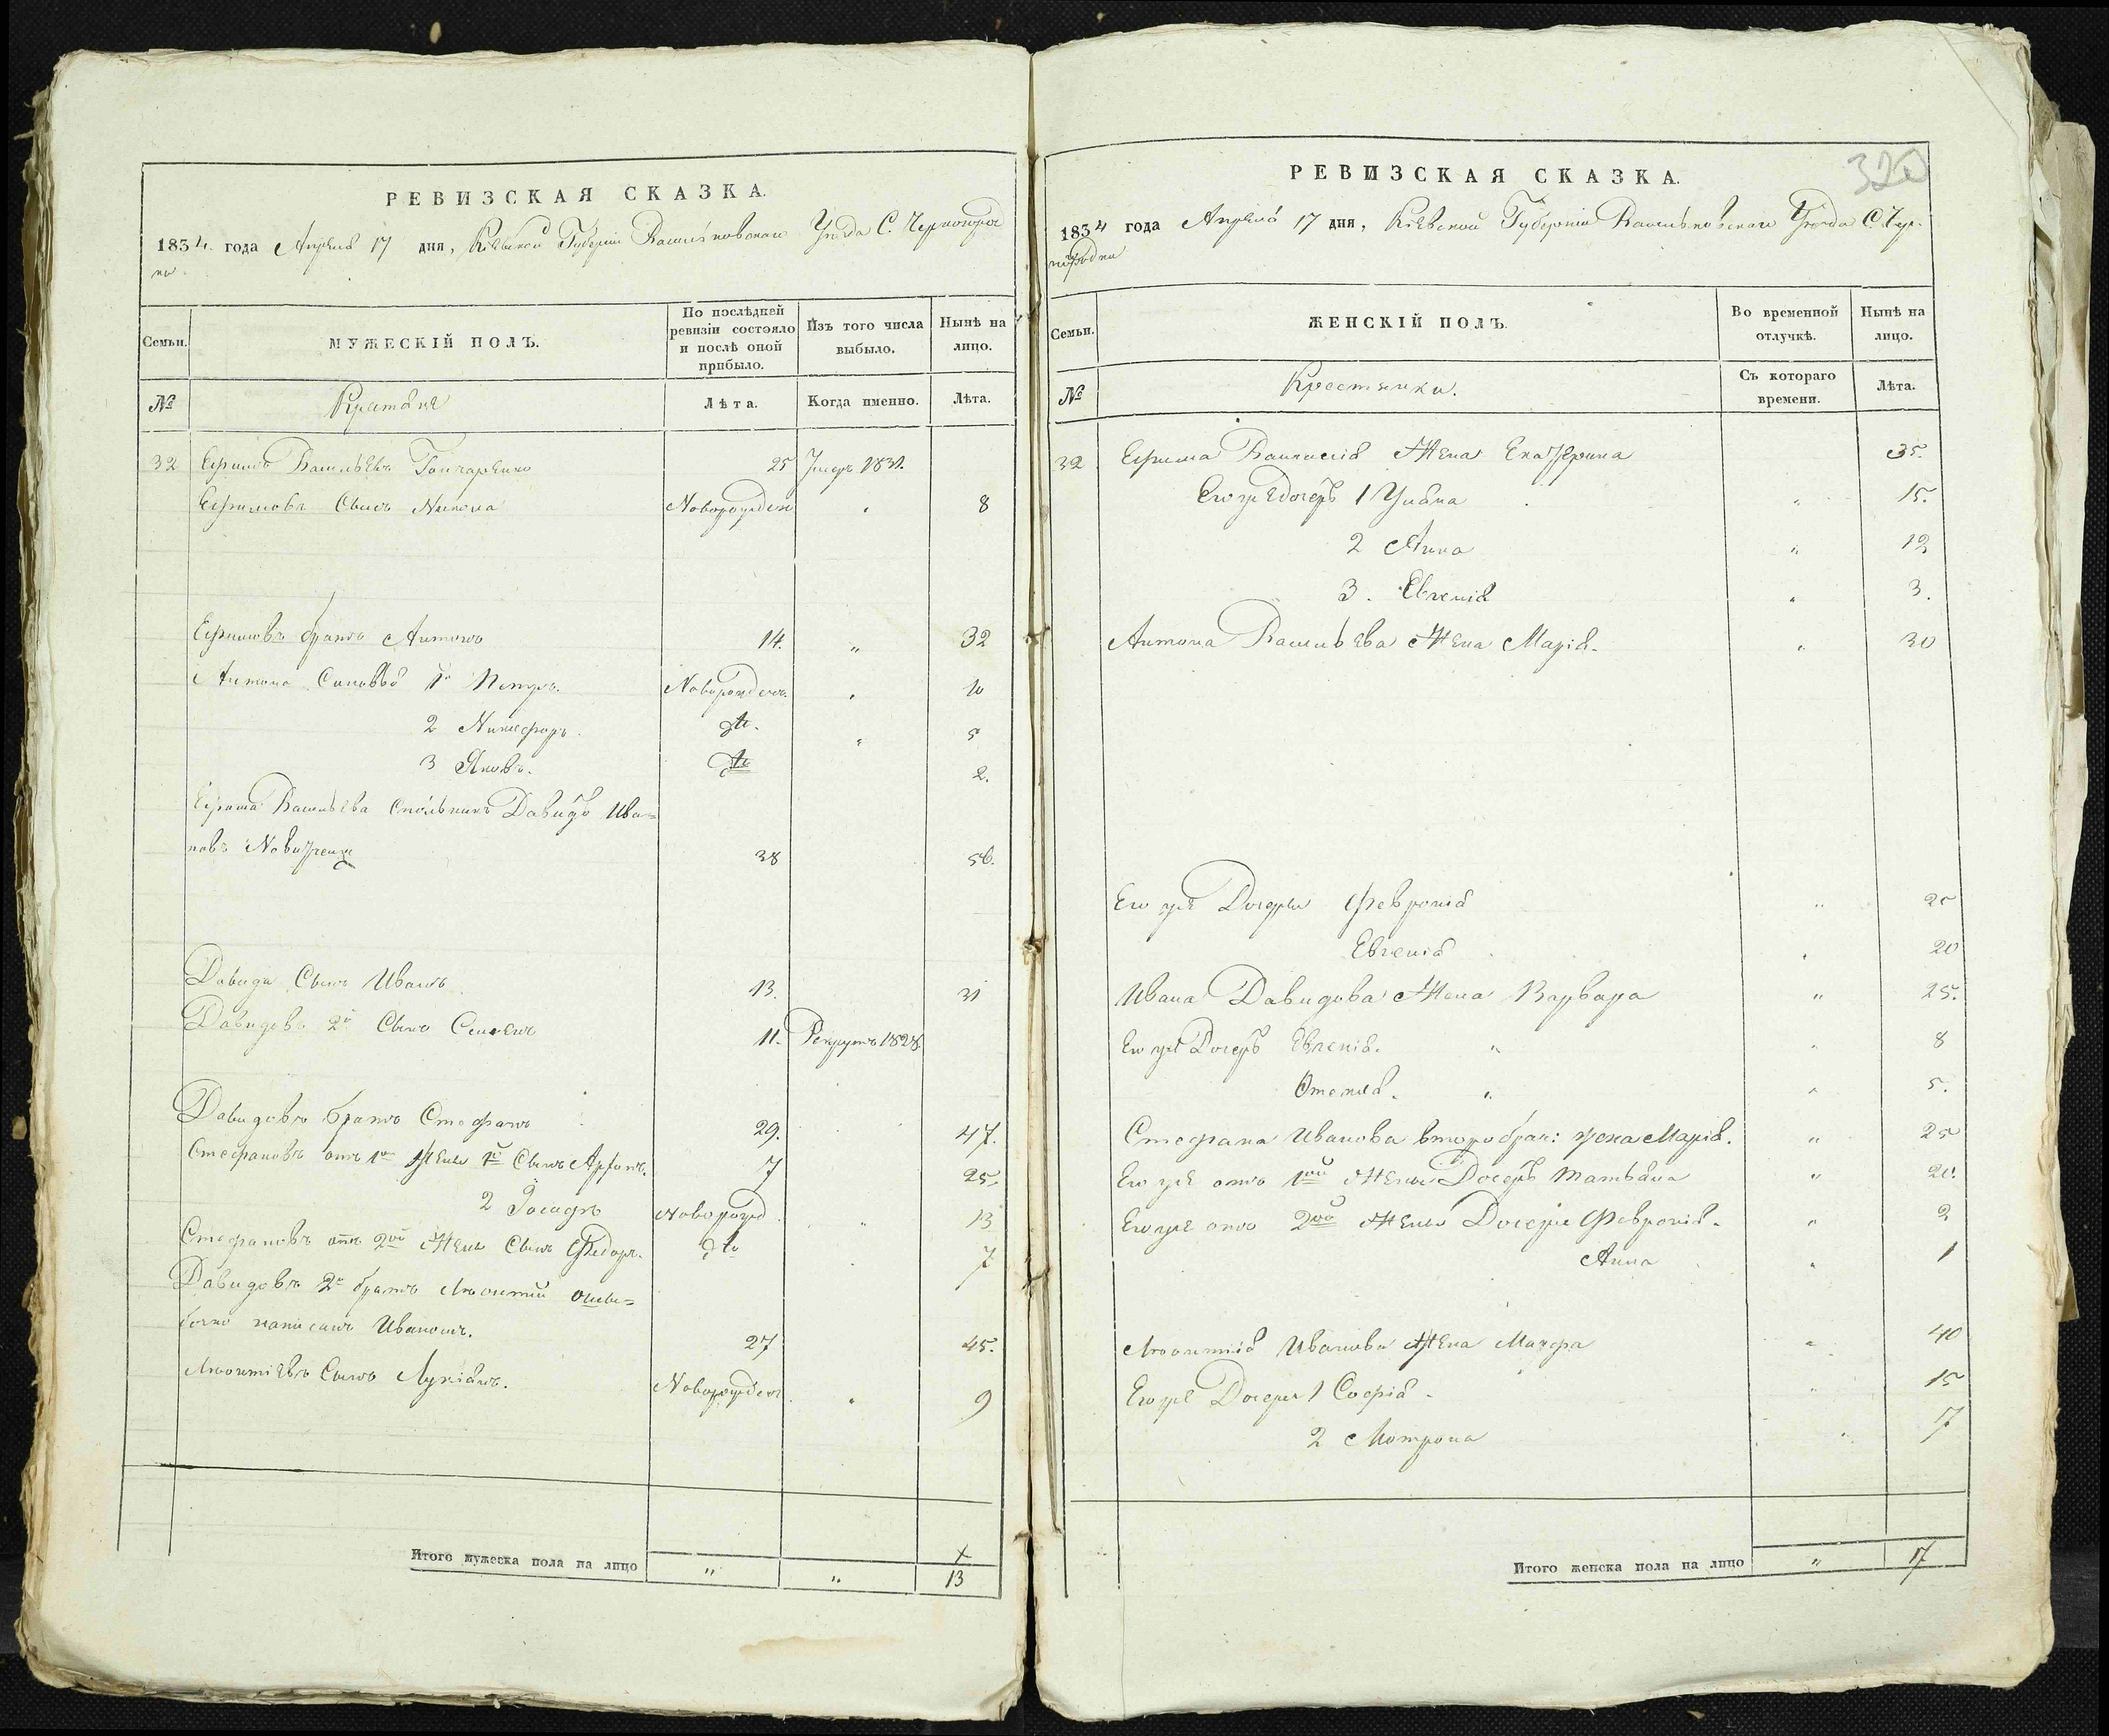 РЕВИЗСКАЯ СКАЗКА.
1834. года Апреля 17 дня, Кіевской Губерніи Васильковскаго Уезда С. Черногород
ки
Семьи.
МУЖЕСКІЙ ПОЛЪ.
По послѣдней ревизіи состояло и послѣ оной прибыло.
Изъ того числа выбыло.
Нынѣ на лицо.
№
Крестьяне
Лѣта.
Когда именно.
Лѣта.
32 Ефимъ Васильевъ Гончаренко 25 Умеръ 1831.
Ефимовъ Сынъ Никола Новорожден " 8
Ефимовъ братъ Антонъ 14. " 32
Антона Синовья 1й Петръ. Новорожденъ. " 10
2 Никифоръ. dto. " 5
3 Яковъ. dto 2.
Ефима Васильева Спольникъ Давидъ Ива=
новъ 38 56.
Давида Сынъ Иванъ 13. 31
Давидовъ 2й Сынъ Семенъ 11. Рекрутъ 1828.
Давидовъ братъ Стефанъ 29. 47.
Стефановъ отъ 1ой Жены 1й Сынъ 7 25.
2 Новорожд. " 13
Стефановъ отъ 2ой Жены Сынъ Федоръ. dto " 7
Давидовъ 2й братъ Леонтій оши=
бочно написанъ Иваномъ. 27 45.
Леонтіевъ Сынъ Лукіянъ. Новорожден " 9
Итого мужеска пола на лицо " " 13
РЕВИЗСКАЯ СКАЗКА.
320
1834 года Апреля 17 дня, Кіевской Губерніи Васильковскаго Уезда С. Чер-
ногородки
Семьи.
ЖЕНСКІЙ ПОЛЪ.
Во временной отлучкѣ.
Нынѣ на лицо.
№
Крестьянки.
Съ котораго времени.
Лѣта.
32 Ефима Василіева Жена Екатерина 35.
Его же дочерь 1 Уляна " 15.
2 Анна " 12
3. Евгенія " 3.
Антона Васильева Жена Марія. " 30
Его же Дочери Февронія " 25
Евгенія " 20
Ивана Давидова Жена Варвара " 25.
Его же Дочерь Евгенія. " " 8
" " 5.
Стефана Иванова второбрач: жена Марія. " 25
Его же отъ 1ой Жены Дочерь Татьяна " 20.
Его же отъ 2ой Жены Дочери Февронія. " 2
Анна " 1
Леонтія Иванова Жена Марфа " 40
Его же Дочери 1 Софія. " 15
2 Мотрона " 17
Итого женска пола на лицо " 17